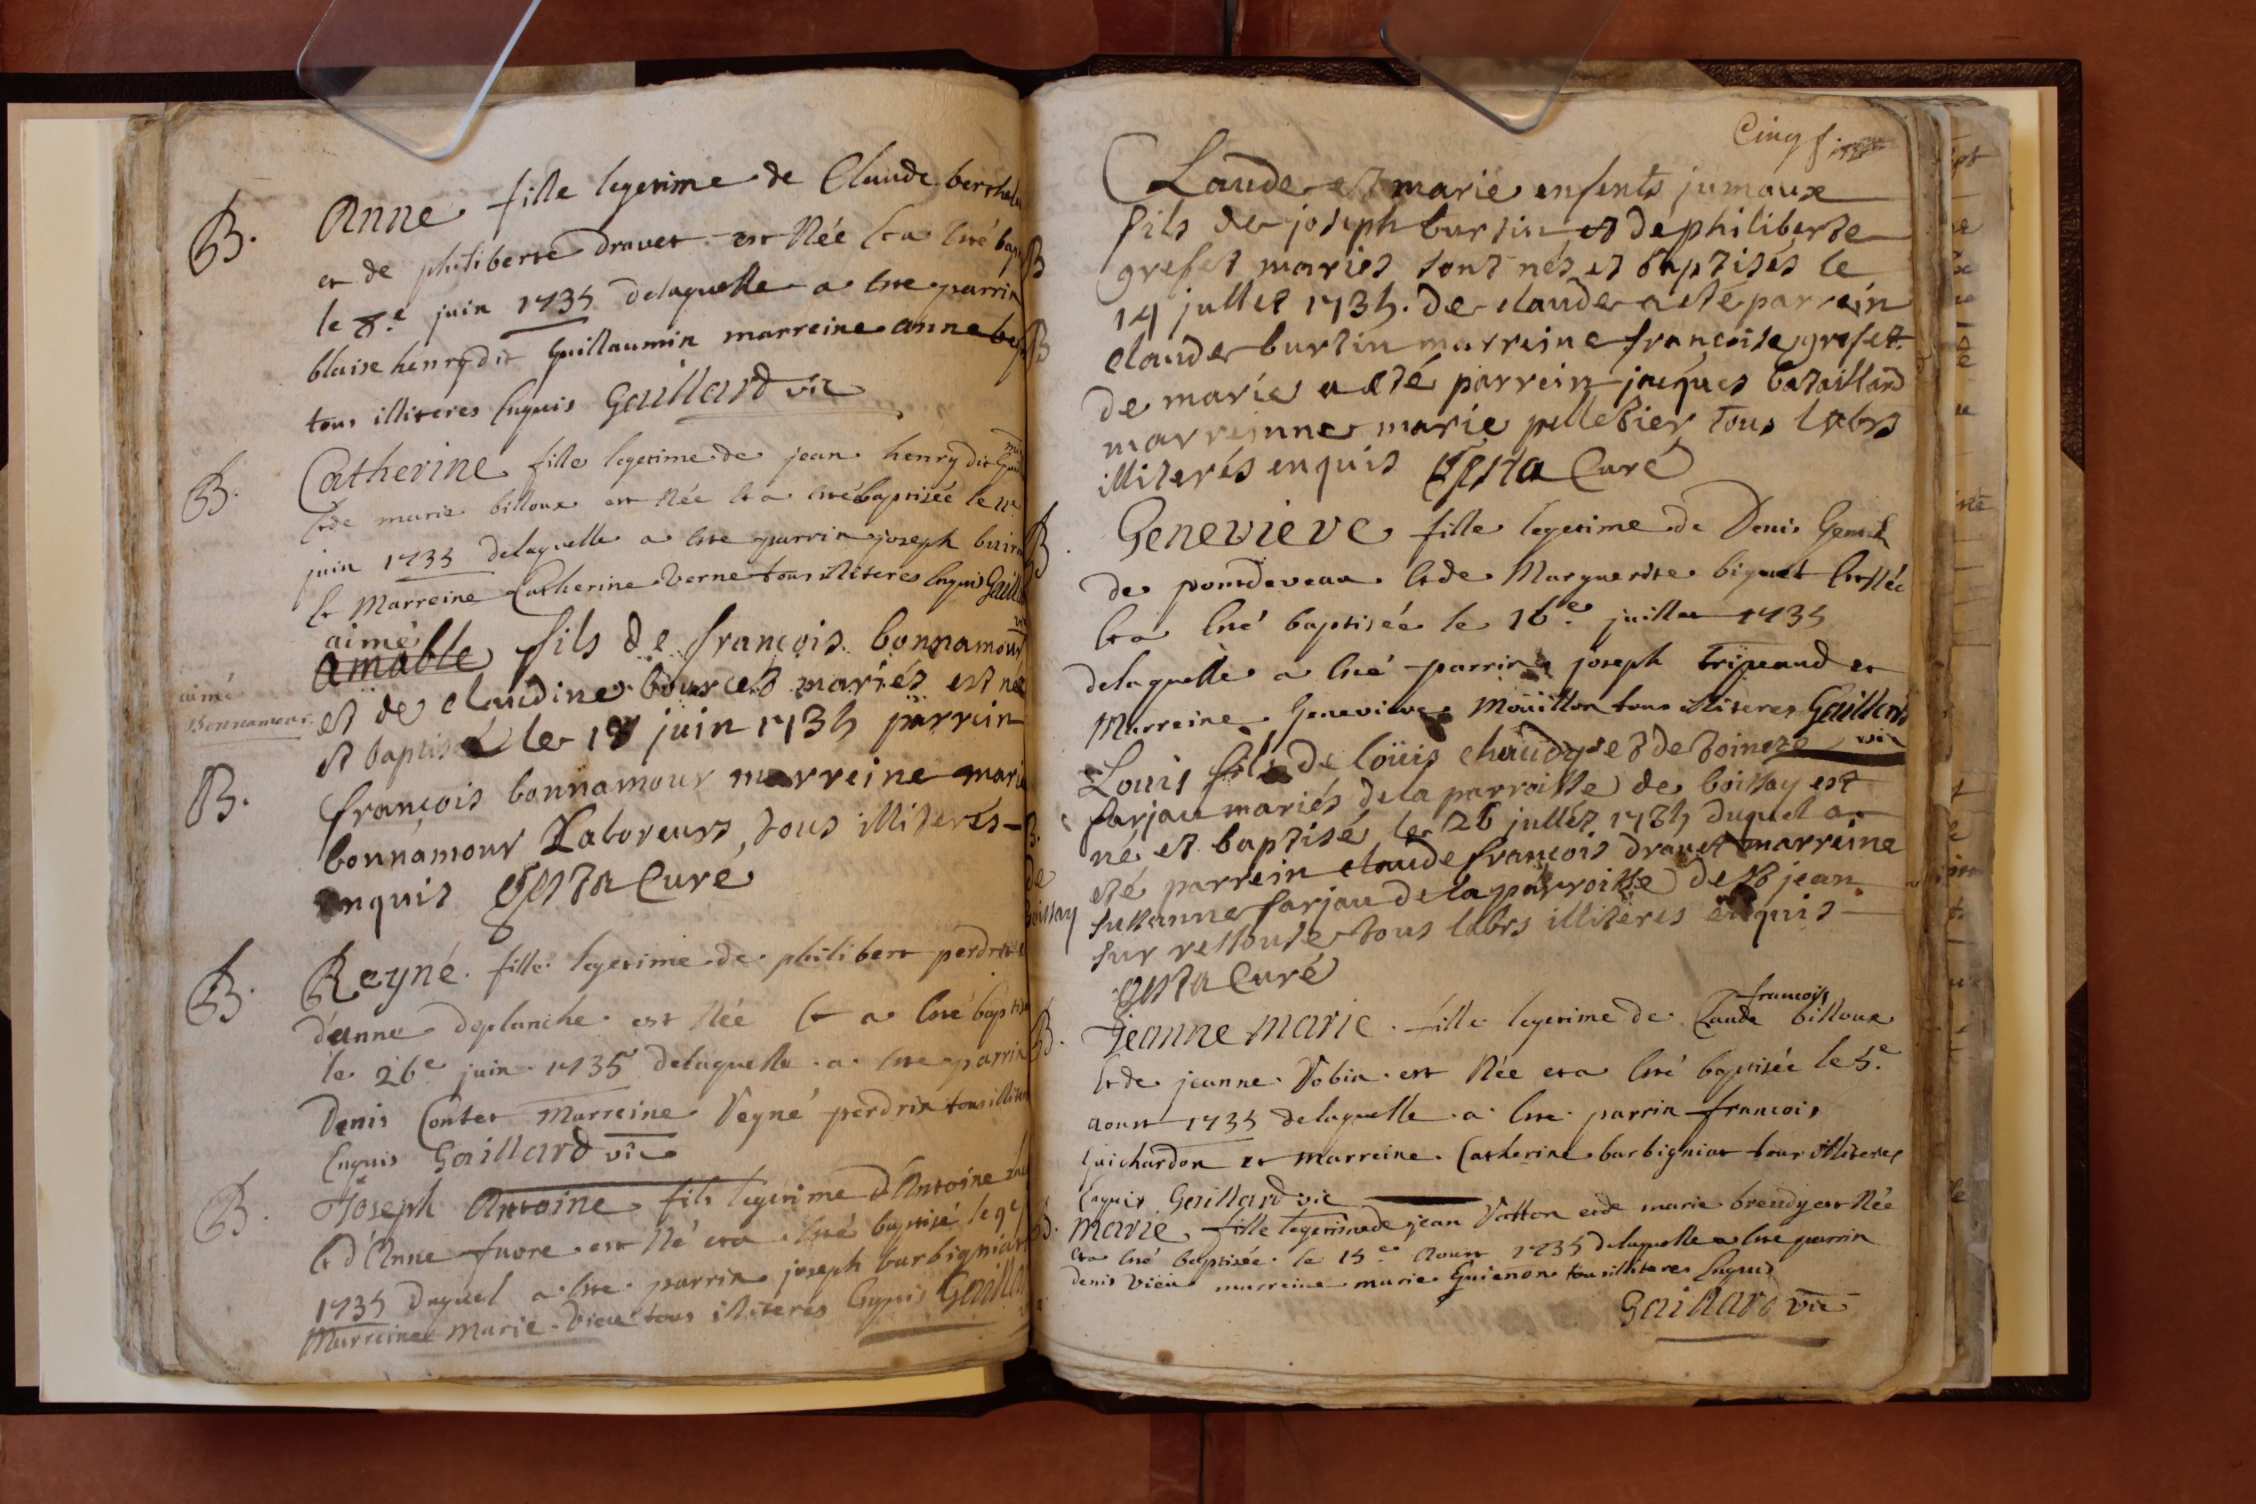 B. Anne fille legetime de Claude berthel
et de philiberte dravet est Née et a été bap
le 8.e juin 1735 delaquelle a été parrin
blaise henry dit Guillaumin marreine anne be
tous illiteres Enquis Gaillard vic
B. Catherine fille legetime de jean henry dit
et de marie billoux est Née et a été baptisée le
juin 1735 delaquelle a été parrin joseph
et Marreine Catherine Verne tous illiteres Enquis Gaill
aimé
amable fils de françois bonnamour
aimé
Bonnamour
et de claudine bourcet mariés est né
et baptisé le 19 juin 1735 parrein
B. françois bonnamour marreine marie
bonnamour Laboreurs, tous illiterés
enquis Curé
B. Reyné fille legetime de philibert perdri
d'anne deplanche est Née et a été baptisé
le 26e juin 1735 delaquelle a été parrin
Denis Contet Marreine Reyné perdrix tous illiter
Enquis Gaillard vic
B. Joseph Antoine fils legetime d'Antoine
et d'Anne favre est Né et a été baptisé le 9e
1735 Duquel a été parrin joseph barbigniat
Marreine Marie Vieu tous illiteres Enquis Gaillar
Cinq
Claude et marie enfents jumaux
fils de joseph burtin et de philiberte
B
grefet mariés sont nés et baptisés le
14 jullet 1735. de claude a eté parrein
B
claude burtin marreine francoise grefet.
de marie a eté parrein jacques bataillard
marreinne marie pelletier tous labrs
illiterés enquis Curé
B. Genevieve fille legetime de Denis
de pontdevaux et de Marguerite biguet est Née
et a été baptisée le 16e. juillet 1735
delaquelle a été parrin joseph Tripeaud et
Marreine Genevieve Moüillon tous illiteres Gaillard
vic
Louis fils de loüis chaudy et de toinete
farjau mariés de la parroisse de boissay est
B.
né et baptisé le 26 jullet 1735 duquel a
de
eté parrein claude françois dravet marreine
boissay
susanne farjau de la parroisse de St jean
sur ressouse tous labrs illiteres enquis
Curé
francois
B. Jeanne Marie fille legetime de Claude billoux
et de jeanne Robin est Née et a été baptisée le 5.e
aoust 1735 delaquelle a été parrin francois
Guichardon et marreine Catherine barbigniat tous illiteres
Enquis Gaillard vic
B. Marie fille legetime de jean Votton et de marie brendy est Née
et a été baptisée le 15e Aoust 1735 delaquelle a été parrin
denis Vieu marreine marie Guienon tous illiteres Enquis
Gaillard vic